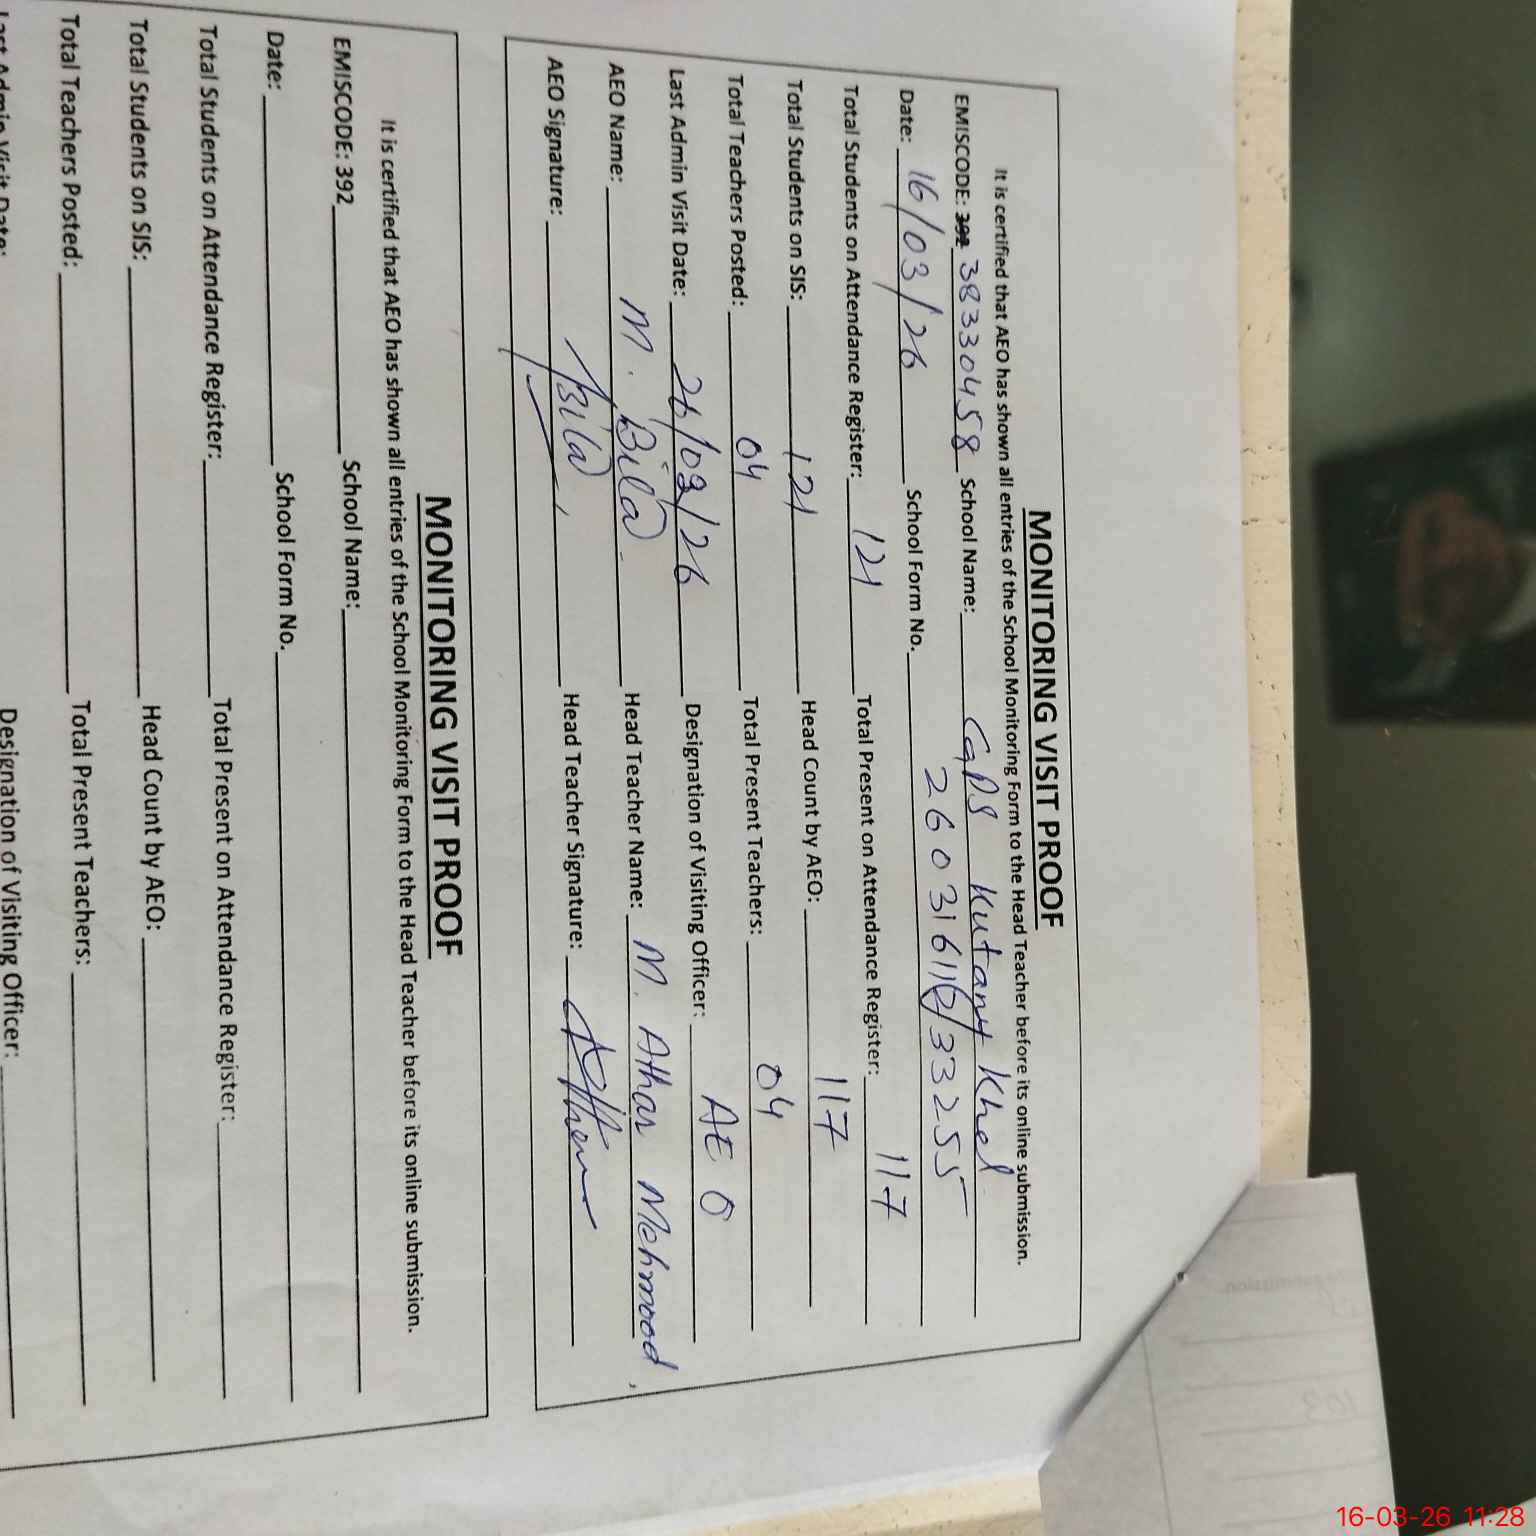 MONITORING VISIT PROOF
It is certified that AEO has shown all entries of the School Monitoring Form to the Head Teacher before its online submission.
EMISCODE: 392 38330458 School Name: GPS Kutany Khel
Date: 16/03/26 School Form No. 260316116/33255
Total Students on Attendance Register: 121 Total Present on Attendance Register: 117
Total Students on SIS: 121 Head Count by AEO: 117
Total Teachers Posted: 04 Total Present Teachers: 04
Last Admin Visit Date: 26/02/26 Designation of Visiting Officer: AEO
AEO Name: M. Bilal Head Teacher Name: M. Athar Mehmood
AEO Signature: Bilal Head Teacher Signature: Athar
MONITORING VISIT PROOF
It is certified that AEO has shown all entries of the School Monitoring Form to the Head Teacher before its online submission.
EMISCODE: 392 School Name:
Date: School Form No.
Total Students on Attendance Register: Total Present on Attendance Register:
Total Students on SIS: Head Count by AEO:
Total Teachers Posted: Total Present Teachers:
Last Admin Visit Date: Designation of Visiting Officer:
16-03-26 11:28